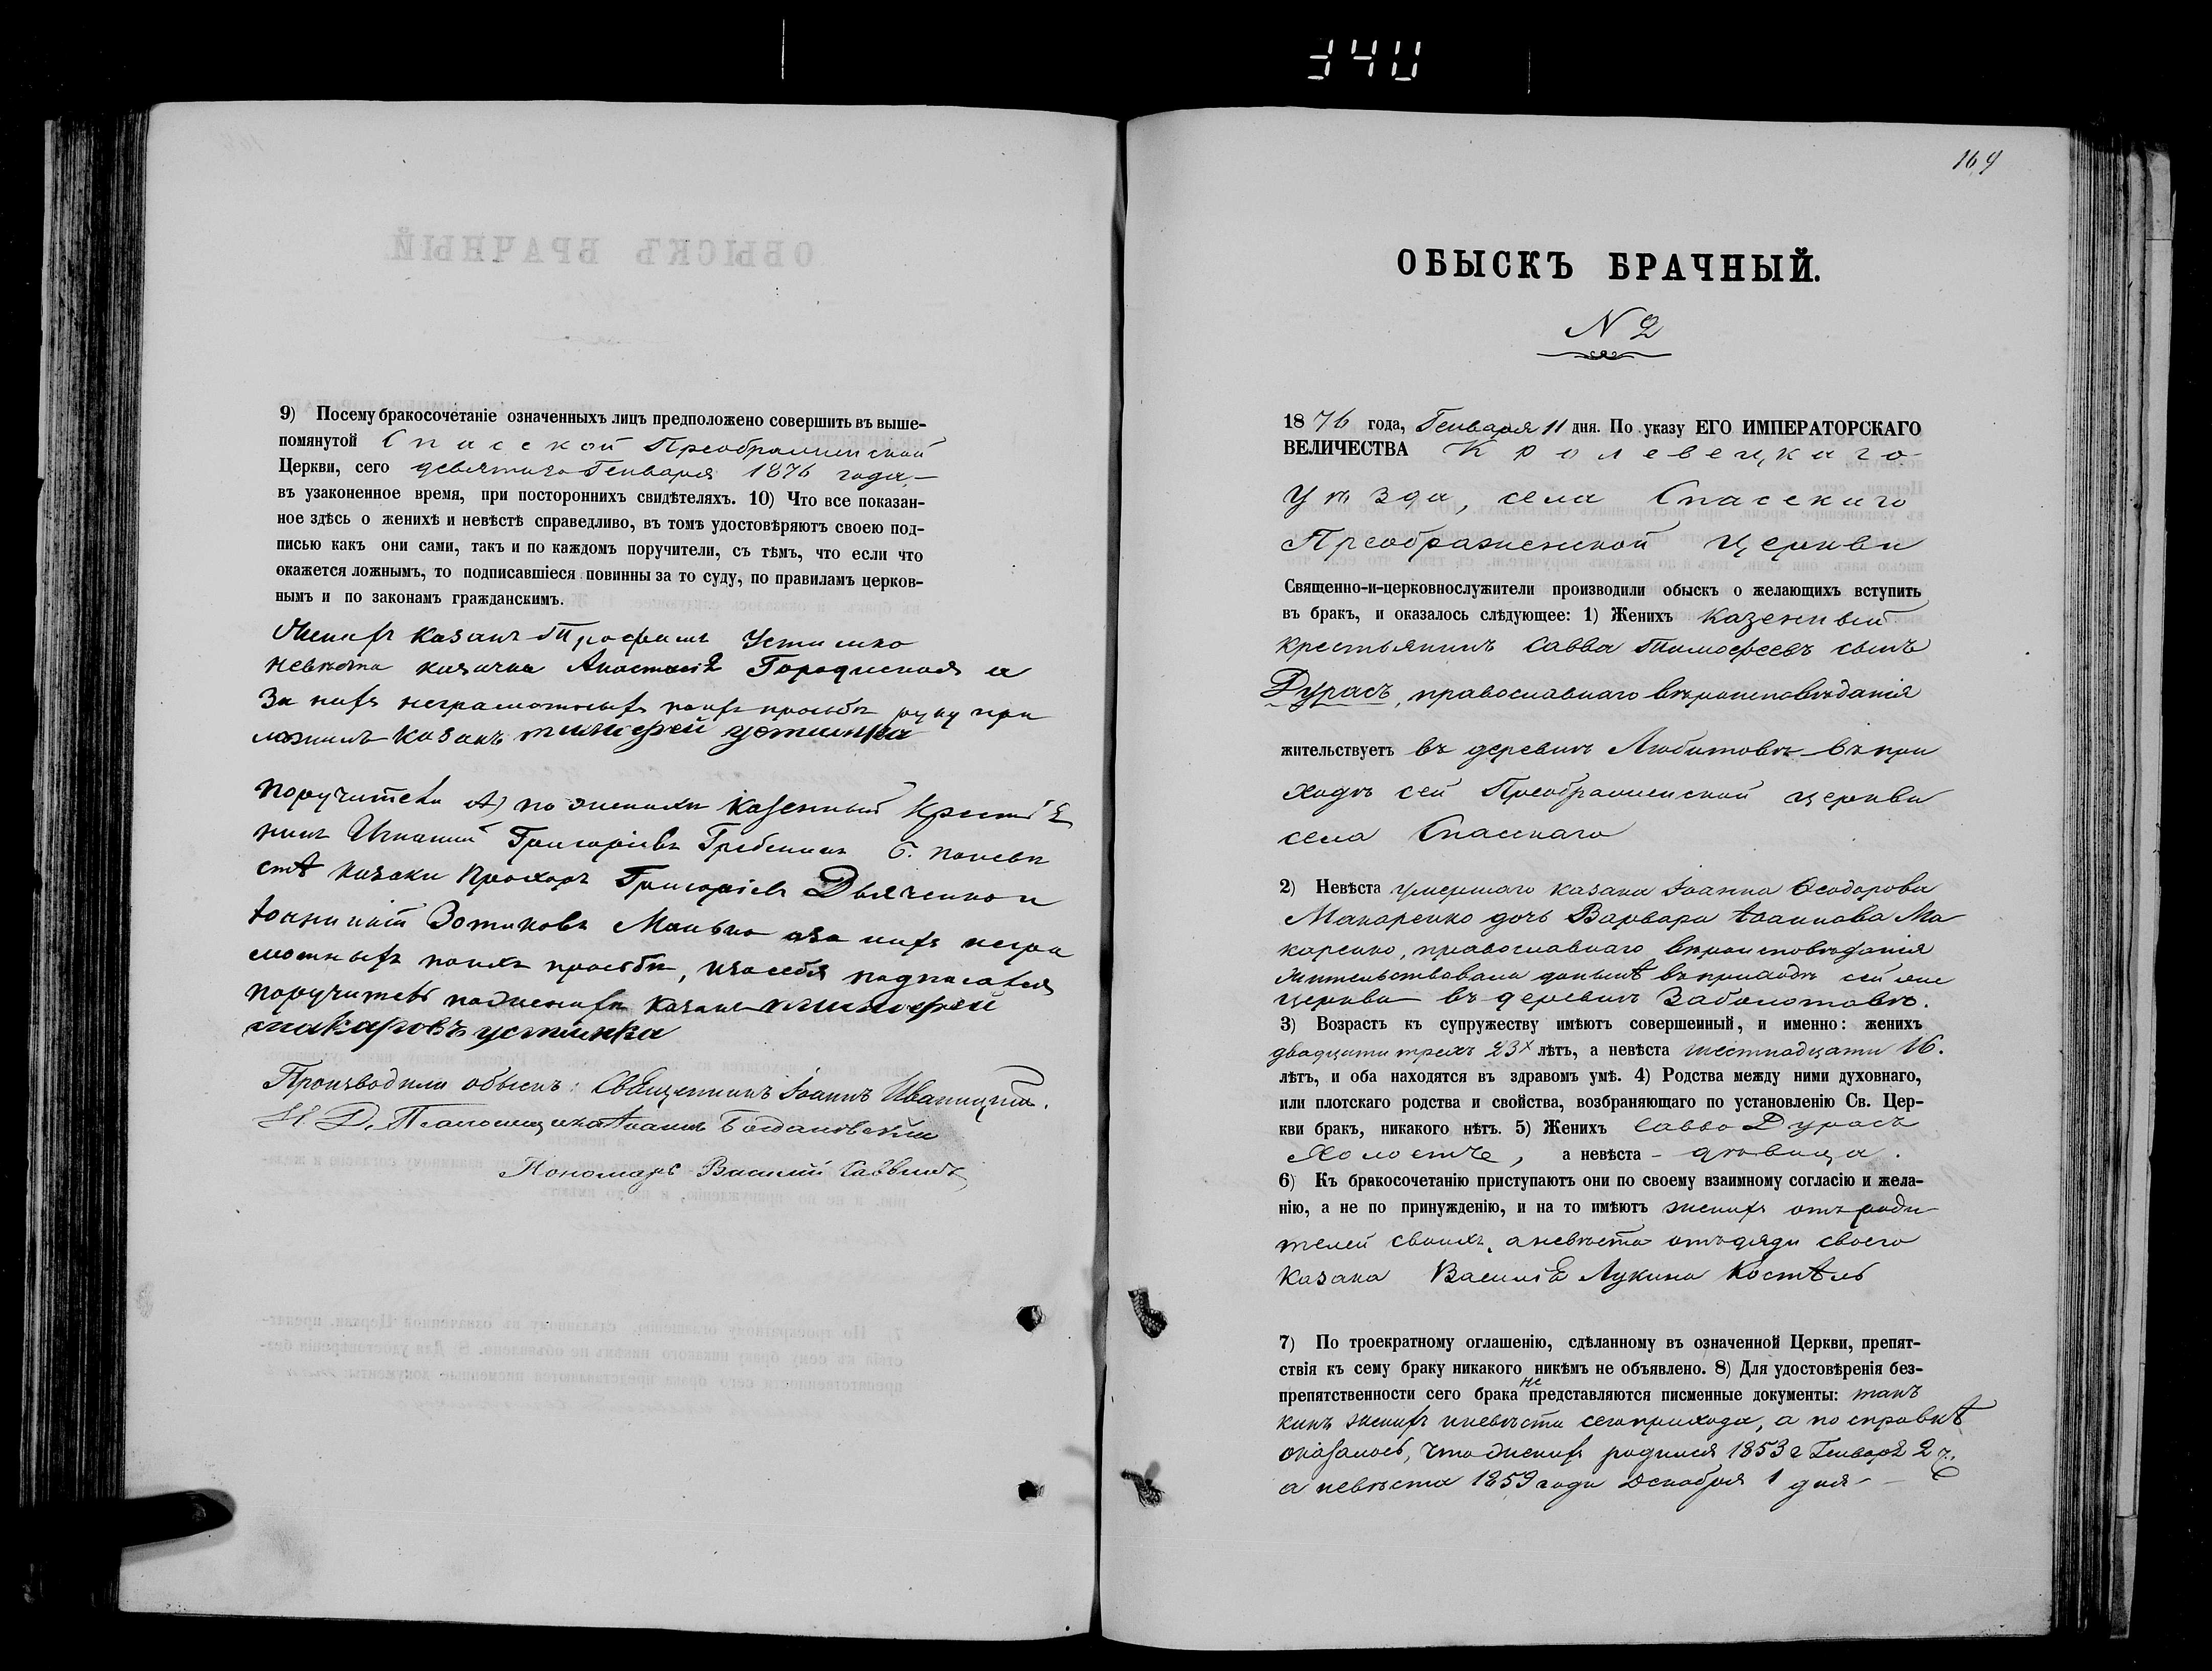 340
9) Посему бракосочетаніе означенныхъ лицъ предположено совершить въ выше-
помянутой Спасской Преображенской
Церкви, сего девятаго Генваря 1876 года,
въ узаконенное время, при постороннихъ свидѣтеляхъ. 10) Что все показан-
ное здѣсь о женихѣ и невѣстѣ справедливо, въ томъ удостовѣряютъ своею под-
писью какъ они сами, такъ и по каждомъ поручители, съ тѣмъ, что если что
окажется ложнымъ, то подписавшіеся повинны за то суду, по правиламъ церков-
нымъ и по законамъ гражданскимъ.
Женихъ казакъ Трофимъ Устимко
невѣста казачка Анастасія Городиская а
За нихъ неграмотныхъ по ихъ просьбѣ руку при
ложилъ казакъ тимофей устимка
Поручители А) по женихѣ казенный Крестья
нинъ Игнатій Григоріевъ Гребеникъ б. по невѣ
стѣ казаки Прохоръ Григоріевъ Дьяченко и
Зотиковъ Манько а за нихъ негра
мотныхъ по ихъ просьбѣ, и за себя подписался
поручитель казакъ тимофей
макаровъ устимка
Производили обыскъ: Священникъ Іоаннъ Иваницкій.
И. Д. Псаломщика Іоаннъ Богдановскій
Пономарь Василій Саввичъ
169
ОБЫСКЪ БРАЧНЫЙ.
N 2
1876 года, Генваря 11 дня. По указу ЕГО ИМПЕРАТОРСКАГО
ВЕЛИЧЕСТВА Кролевецкаго
уѣзда, села Спасскаго
Преображенской церкви
Священно-и-церковнослужители производили обыскъ о желающихъ вступить
въ бракъ, и оказалось слѣдующее: 1) Женихъ казенный
крестьянинъ Савва Тимофеевъ сынъ
Дурасъ, православнаго вѣроисповѣданія
жительствуетъ въ деревнѣ Любитовѣ въ при
ходѣ сей Преображенской церкви
села Спасскаго
2) Невѣста умершаго казака Іоанна Ѳеодорова
Макаренко дочь Варвара Іоаннова Ма
каренко, православнаго вѣроисповѣданія
жительствовала донынѣ въ приходѣ сей же
церкви въ деревнѣ Заболотовѣ.
3) Возрастъ къ супружеству имѣютъ совершенный, и именно: женихъ
двадцати трехъ 23х лѣтъ, а невѣста шестнадцати 16.
лѣтъ, и оба находятся въ здравомъ умѣ. 4) Родства между ними духовнаго,
или плотскаго родства и свойства, возбраняющаго по установленію Св. Цер-
кви бракъ, никакого нѣтъ. 5) Женихъ Савва Дурасъ
Холостъ, а невѣста - дѣвица.
6) Къ бракосочетанію приступаютъ они по своему взаимному согласію и жела-
нію, а не по принужденію, и на то имѣютъ женихъ отъ роди
телей своихъ, а невѣста отъ дяди своего
казака Василія Лукина Костѣль
7) По троекратному оглашенію, сдѣланному въ означенной Церкви, препят-
ствія къ сему браку никакого никѣмъ не объявлено. 8) Для удостовѣренія без-
препятственности сего брака не представляются писменные документы: такъ
какъ женихъ и невѣста сего прихода, а по справкѣ
оказалось, что женихъ родился 1853 г Генваря 2 ч.
а невѣста 1859 года Декабря 1 дня